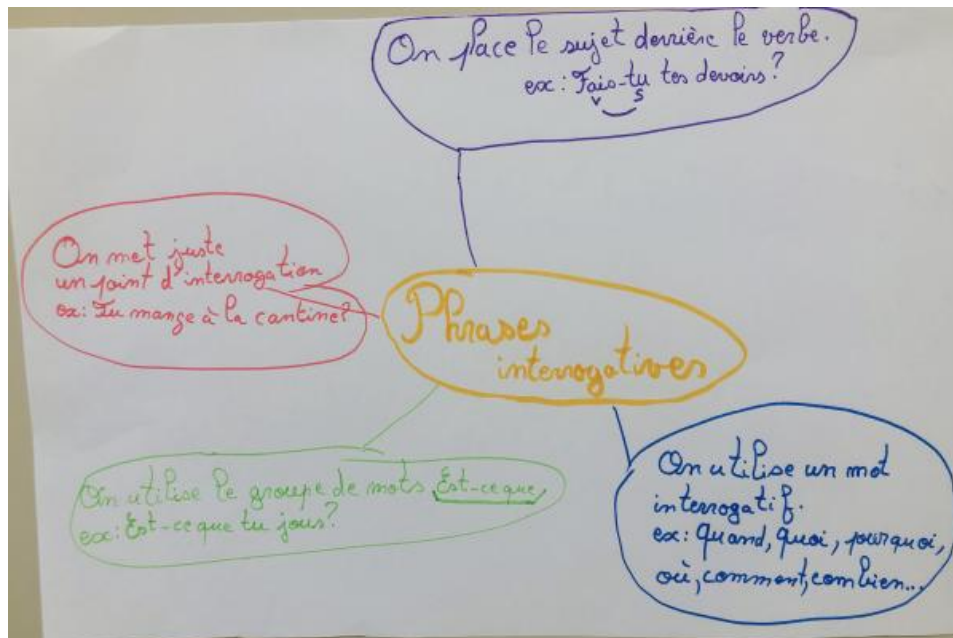 On place le sujet derrière le verbe.
ex: Fais-tu tes devoirs?
v s
On met juste
un point d'interrogation
ex: Tu mange à la cantine?
Phrases
interrogatives
On utilise le groupe de mots Est-ce que,
ex: Est-ce que tu jous?
On utilise un mot
interrogatif.
ex: Quand, quoi, pourquoi,
où, comment, combien...